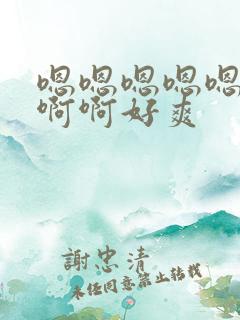 嗯嗯嗯嗯嗯
啊啊好爽
謝忠清
未经同意禁止转载